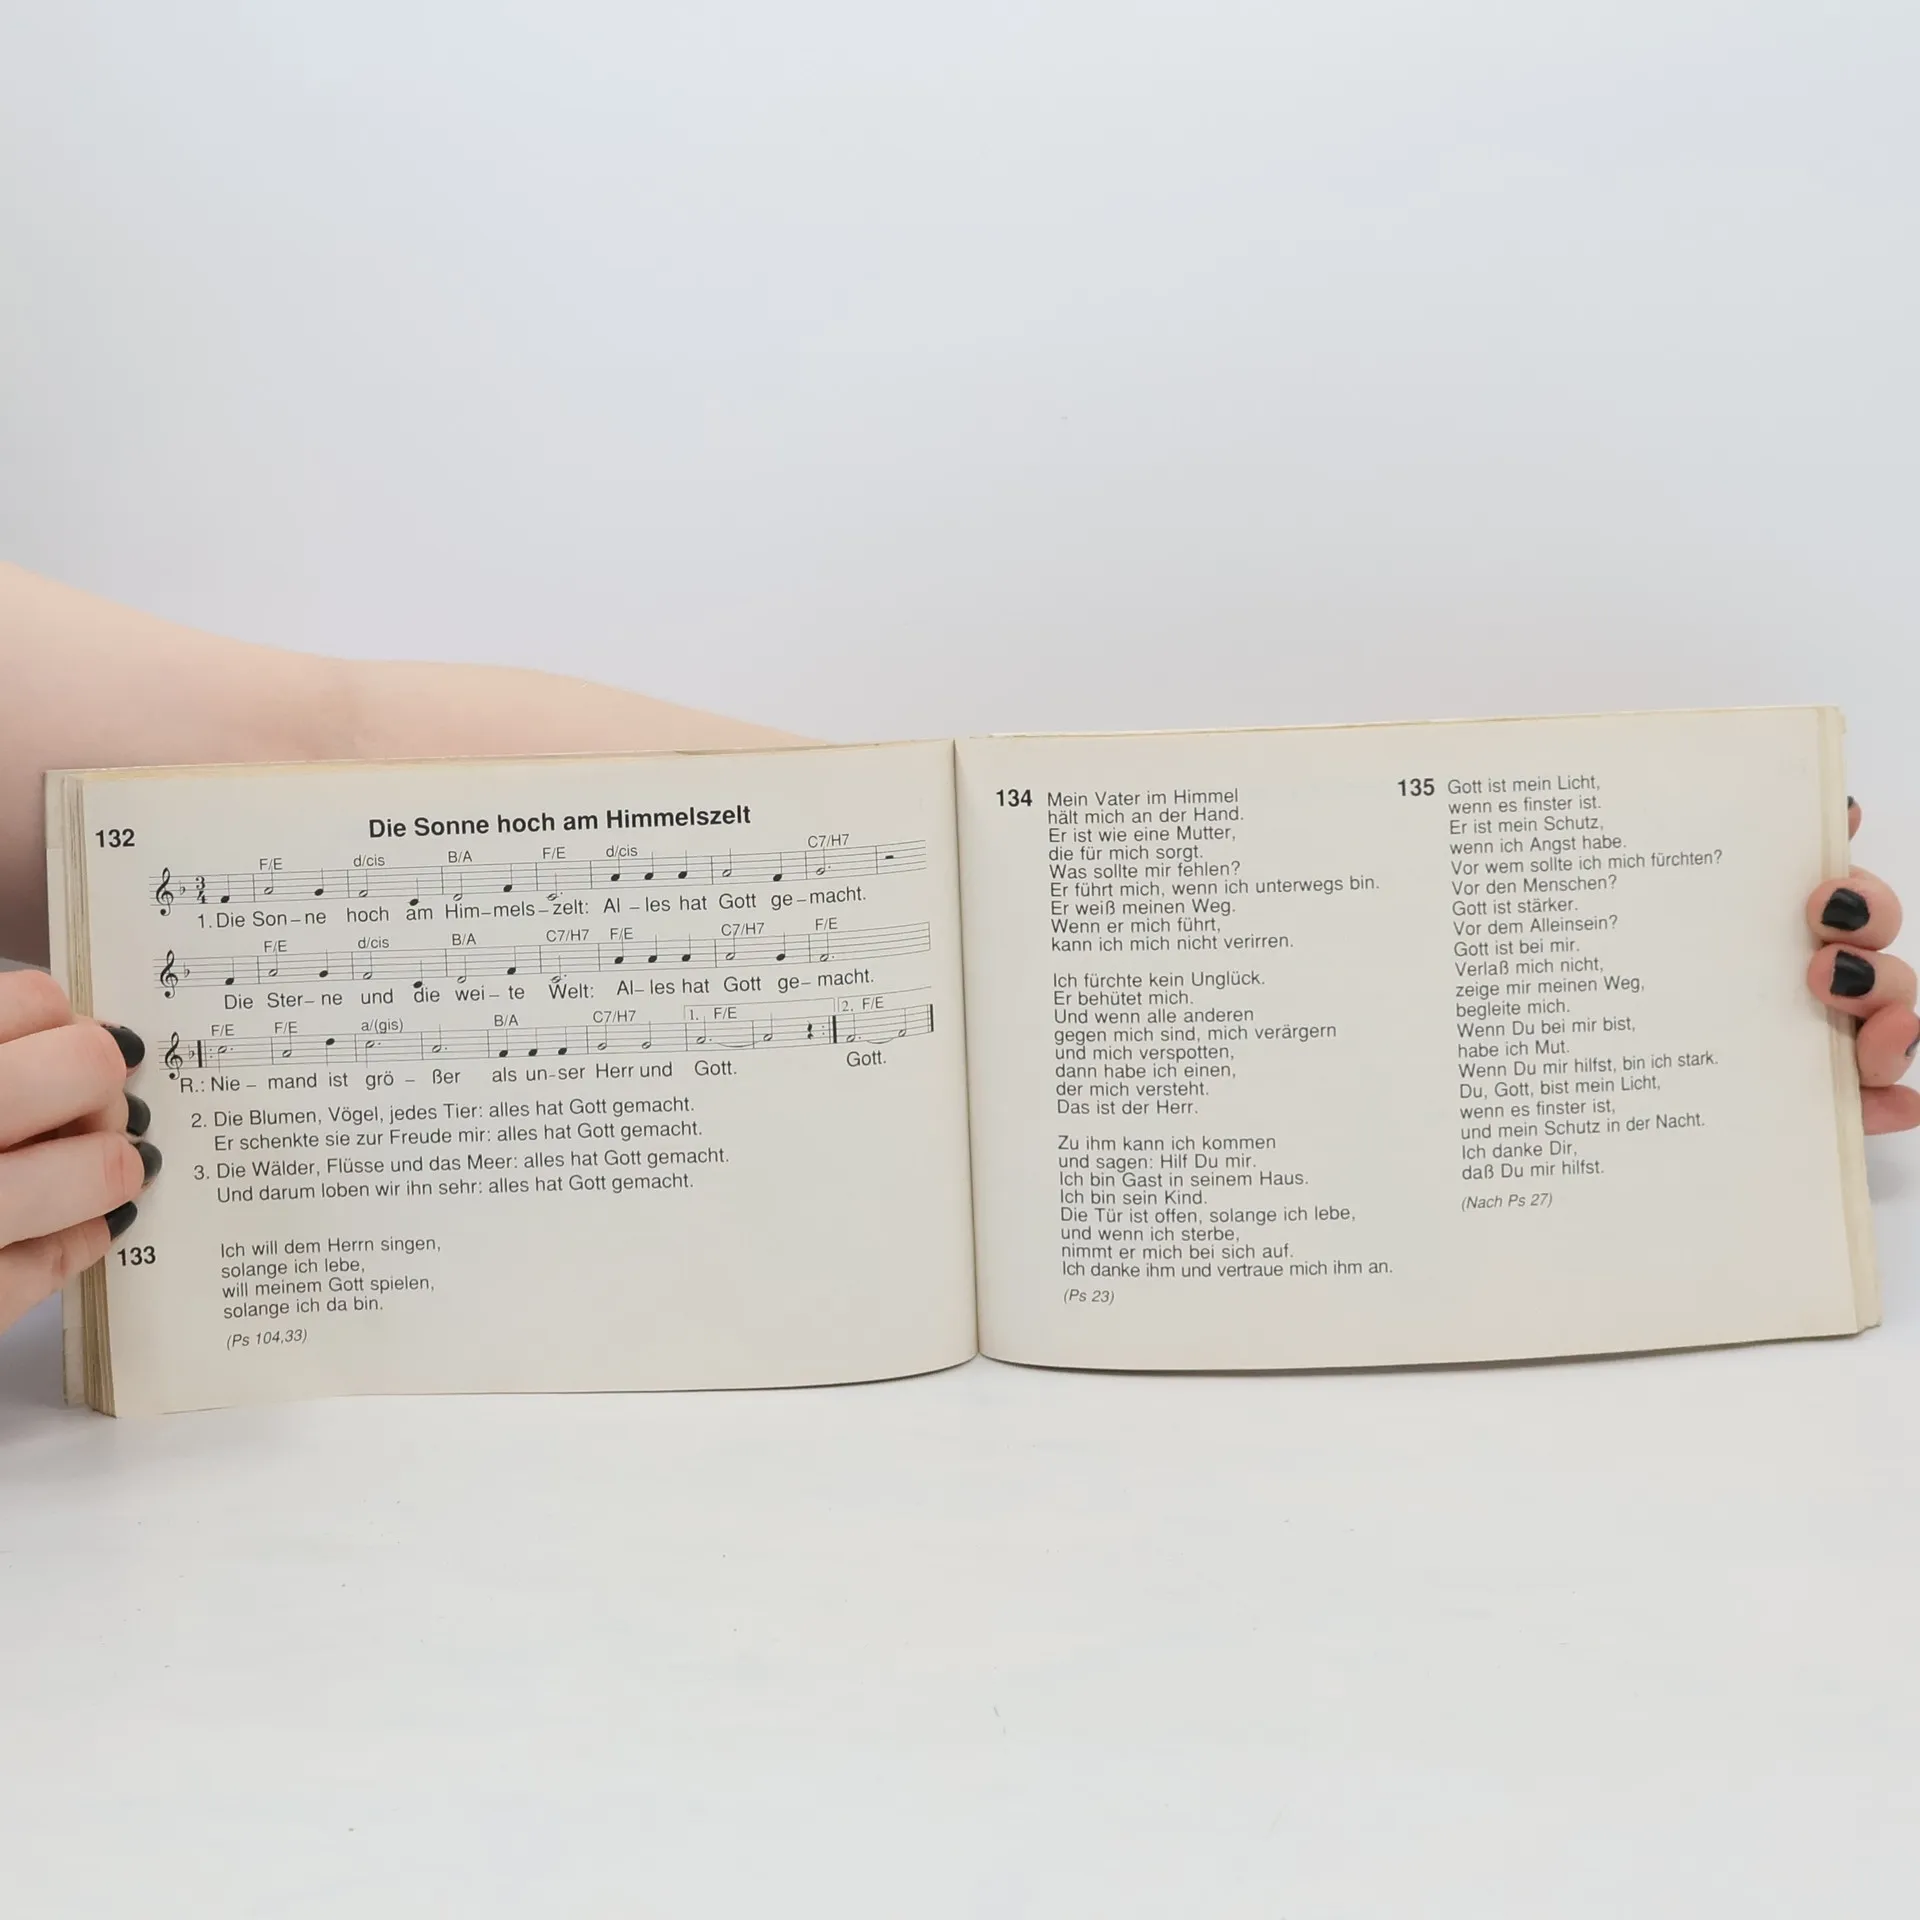 132
Die Sonne hoch am Himmelszelt
F/E d/cis B/A F/E d/cis C7/H7
3
4
1. Die Son–ne hoch am Him–mels–zelt: Al–les hat Gott ge–macht.
F/E d/cis B/A C7/H7 F/E C7/H7 F/E
Die Ster–ne und die wei–te Welt: Al–les hat Gott ge–macht.
F/E F/E a/(gis) B/A C7/H7 1. F/E 2. F/E
R.: Nie–mand ist grö–ßer als un-ser Herr und Gott. Gott.
2. Die Blumen, Vögel, jedes Tier: alles hat Gott gemacht.
Er schenkte sie zur Freude mir: alles hat Gott gemacht.
3. Die Wälder, Flüsse und das Meer: alles hat Gott gemacht.
Und darum loben wir ihn sehr: alles hat Gott gemacht.
133 Ich will dem Herrn singen,
solange ich lebe,
will meinem Gott spielen,
solange ich da bin.
(Ps 104,33)
134 Mein Vater im Himmel
hält mich an der Hand.
Er ist wie eine Mutter,
die für mich sorgt.
Was sollte mir fehlen?
Er führt mich, wenn ich unterwegs bin.
Er weiß meinen Weg.
Wenn er mich führt,
kann ich mich nicht verirren.
Ich fürchte kein Unglück.
Er behütet mich.
Und wenn alle anderen
gegen mich sind, mich verärgern
und mich verspotten,
dann habe ich einen,
der mich versteht.
Das ist der Herr.
Zu ihm kann ich kommen
und sagen: Hilf Du mir.
Ich bin Gast in seinem Haus.
Ich bin sein Kind.
Die Tür ist offen, solange ich lebe,
und wenn ich sterbe,
nimmt er mich bei sich auf.
Ich danke ihm und vertraue mich ihm an.
(Ps 23)
135 Gott ist mein Licht,
wenn es finster ist.
Er ist mein Schutz,
wenn ich Angst habe.
Vor wem sollte ich mich fürchten?
Vor den Menschen?
Gott ist stärker.
Vor dem Alleinsein?
Gott ist bei mir.
Verlaß mich nicht,
zeige mir meinen Weg,
begleite mich.
Wenn Du bei mir bist,
habe ich Mut.
Wenn Du mir hilfst, bin ich stark.
Du, Gott, bist mein Licht,
wenn es finster ist,
und mein Schutz in der Nacht.
Ich danke Dir,
daß Du mir hilfst.
(Nach Ps 27)